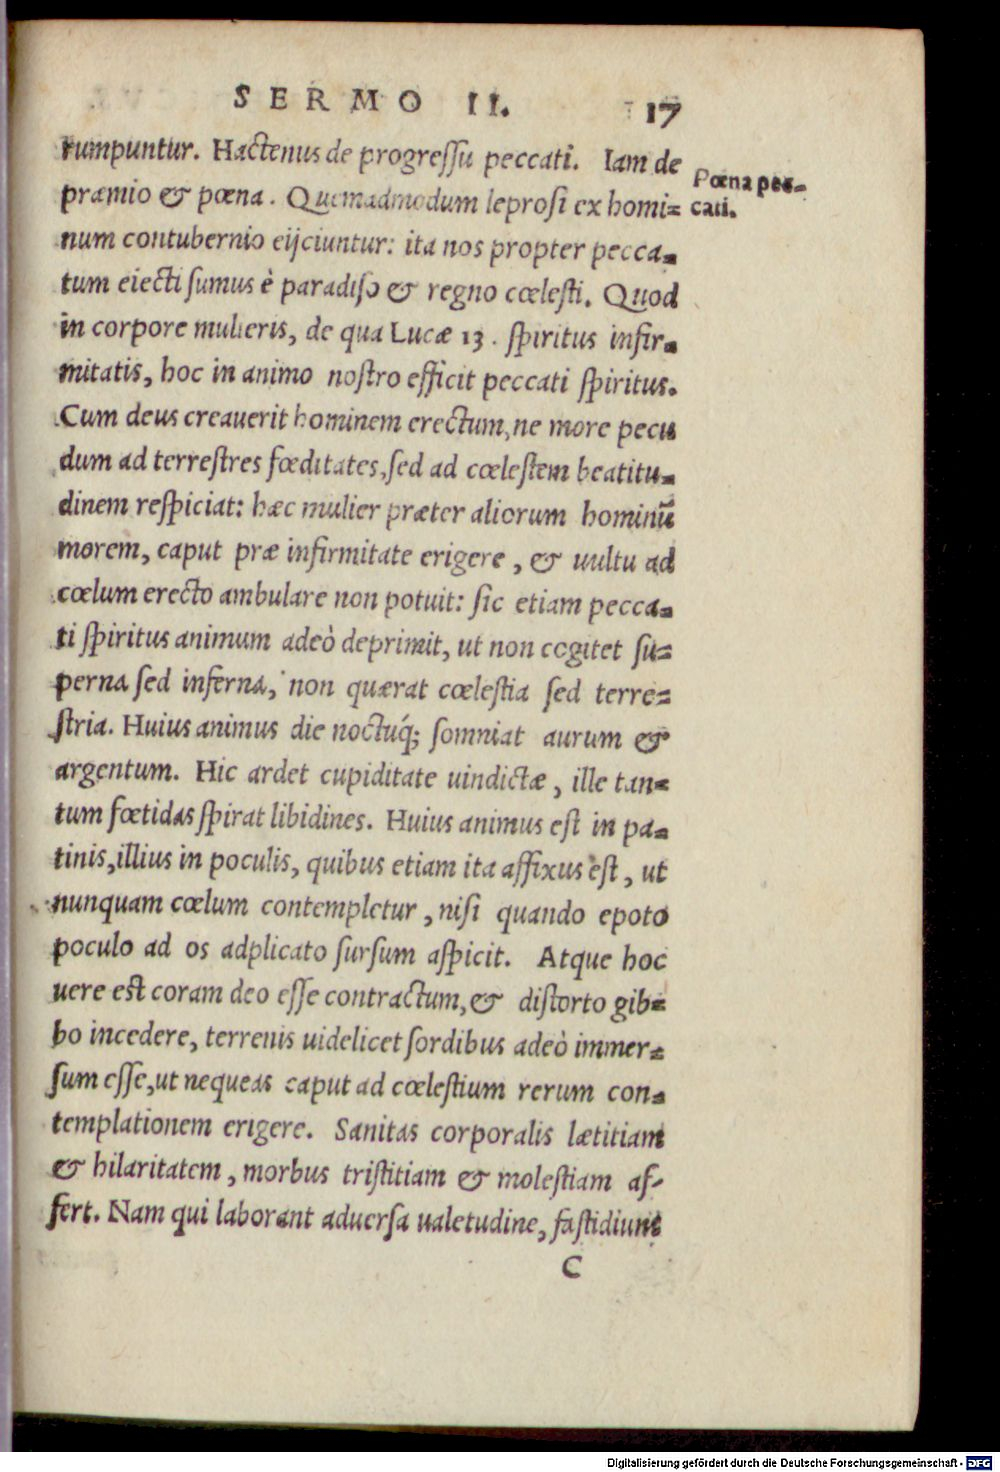 SERMO II. 17
rumpuntur. Hactenus de progressu peccati. Iam de
præmio & pœna. Quemadmodum leprosi ex homi=
num contubernio eijciuntur: ita nos propter pecca=
tum eiecti sumus è paradiso & regno cœlesti. Quod
in corpore mulieris, de qua Lucæ 13. spiritus infir=
mitatis, hoc in animo nostro efficit peccati spiritus.
Cum deus creauerit hominem erectum, ne more pecu
dum ad terrestres fœditates, sed ad cœlestem beatitu=
dinem respiciat: hæc mulier præter aliorum hominū
morem, caput præ infirmitate erigere, & uultu ad
cœlum erecto ambulare non potuit: sic etiam pecca=
ti spiritus animum adeò deprimit, ut non cogitet su=
perna sed inferna, non quærat cœlestia sed terre=
stria. Huius animus die noctuq́; somniat aurum &
argentum. Hic ardet cupiditate uindictæ, ille tan=
tum fœtidas spirat libidines. Huius animus est in pa=
tinis, illius in poculis, quibus etiam ita affixus est, ut
nunquam cœlum contempletur, nisi quando epoto
poculo ad os adplicato sursum aspicit. Atque hoc
uere est coram deo esse contractum, & distorto gib=
bo incedere, terrenis uidelicet sordibus adeò immer=
sum esse, ut nequeas caput ad cœlestium rerum con=
templationem erigere. Sanitas corporalis lætitiam
& hilaritatem, morbus tristitiam & molestiam af-
fert. Nam qui laborant aduersa ualetudine, fastidiunt
C
Pœna pec=
cati.
Digitalisierung gefördert durch die Deutsche Forschungsgemeinschaft - DFG